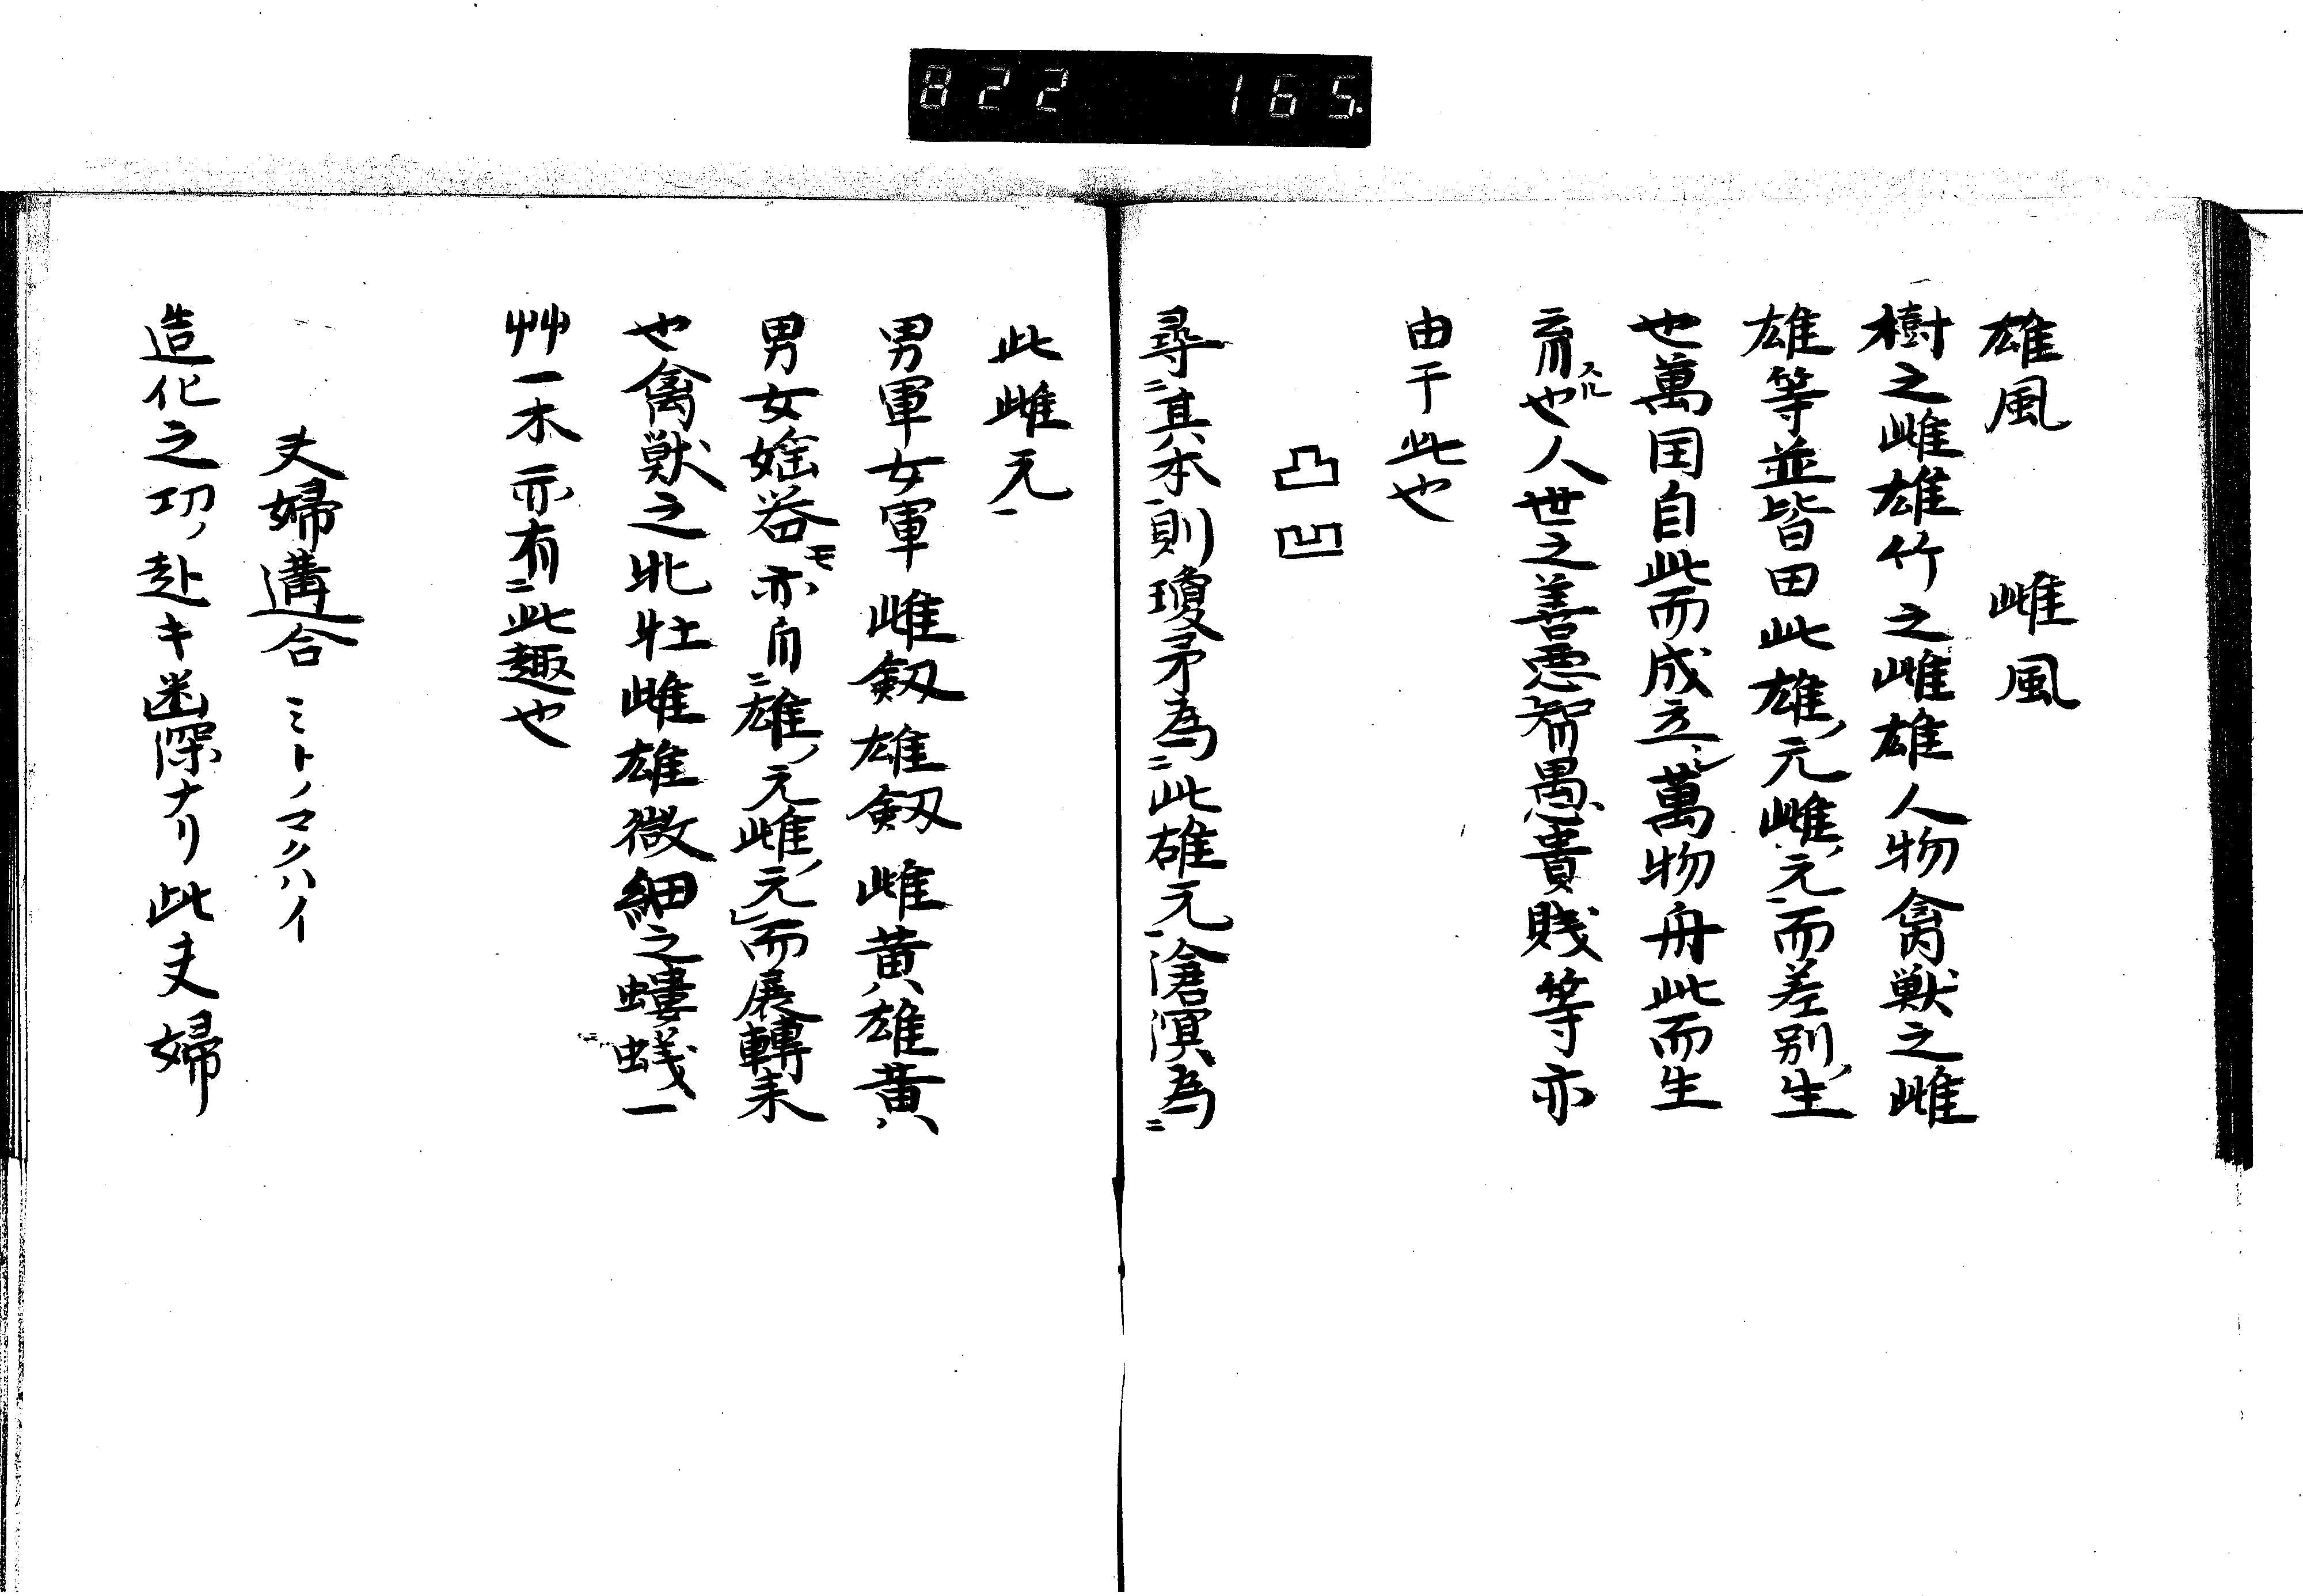 822 165.
雄風 雌風
樹之雌雄竹之雌雄人物禽獣之雌
雄等並皆田此雄ノ元雌ノ元一而差別ノ生
也萬国自此而成立シ萬物舟此而生
育スル也人世之善悪智愚貴賎等亦
由于此也
凸凹
尋二其本一則瓊矛為二此雄元一滄溟為二
此雌元一
男軍女軍雌剱雄剱雌黄雄黄
男女婬器モ亦自二雄ノ元雌ノ元一而展轉来
也禽獣之牝牡雌雄微細之螻蟻一
艸一木亦有二此趣也
夫婦遘合 ミトノマクハイ
造化之功ノ赴キ幽深ナリ此夫婦